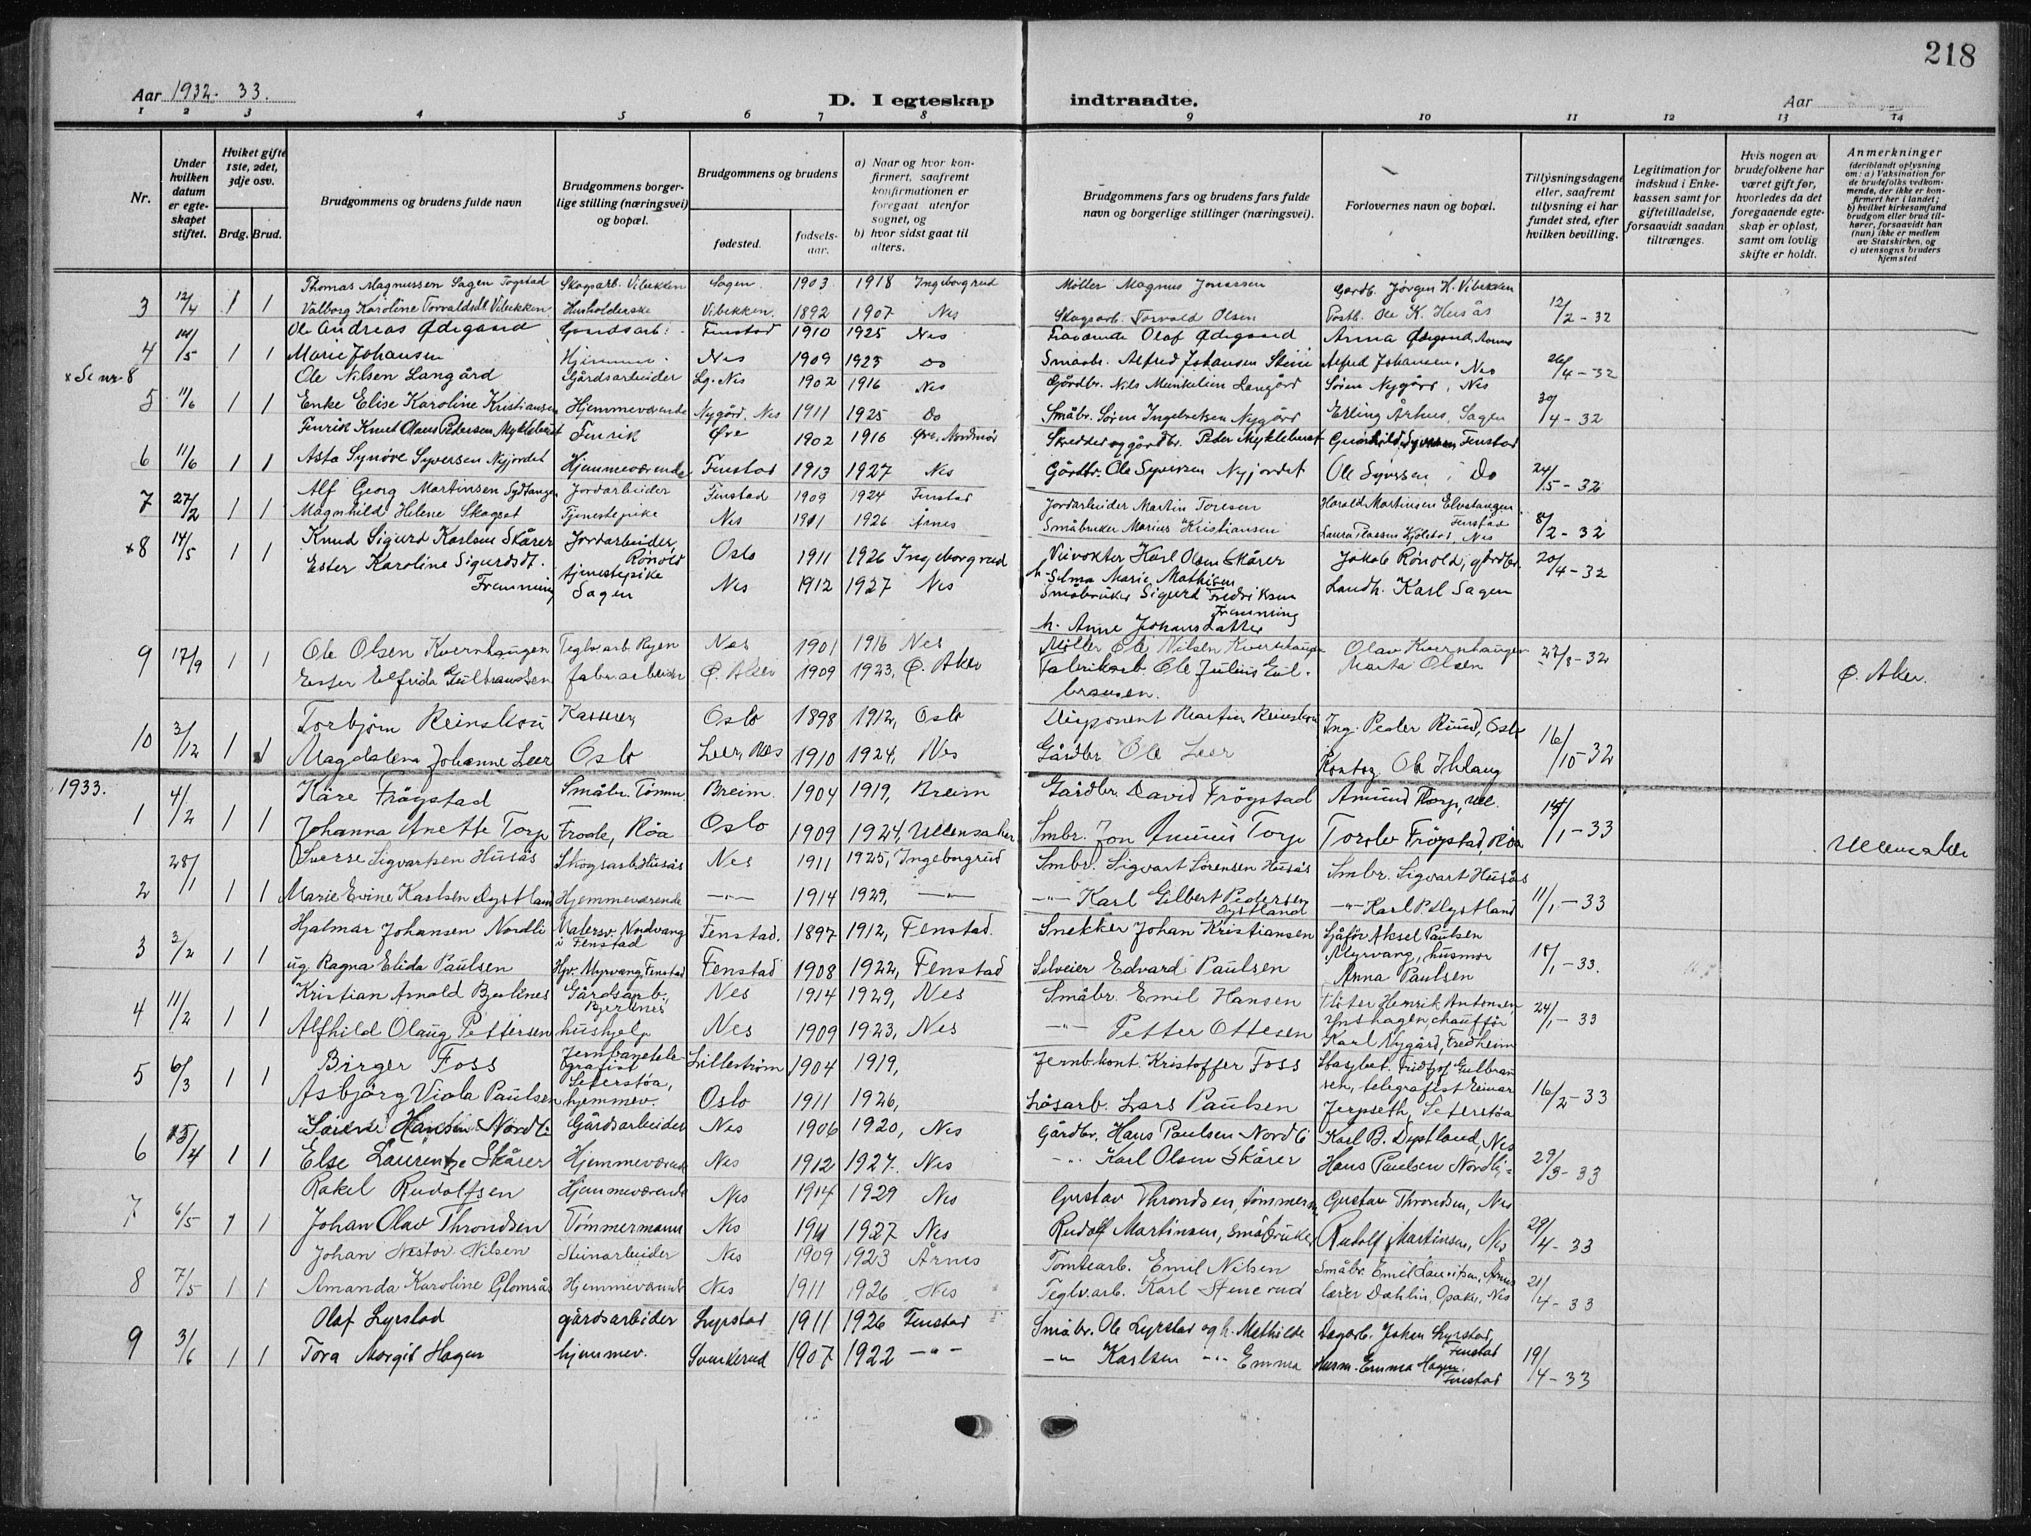 218
Aar 1932-33.
D. I egteskap indtraadte.
Aar
1 2 3 4 5 6 7 8 9 10 11 12 13 14
Nr.
Under hvilken datum er egteskapet stiftet.
Hvilket gifte 1ste, 2det, 3dje osv.
Brdg. Brud.
Brudgommens og brudens fulde navn
Brudgommens borgerlige stilling (næringsvei) og bopæl.
Brudgommens og brudens
fødested.
fødselsaar.
a) Naar og hvor konfirmert, saafremt konfirmationen er foregaat utenfor sognet, og
b) hvor sidst gaat til alters.
Brudgommens fars og brudens fars fulde navn og borgerlige stillinger (næringsvei).
Forlovernes navn og bopæl.
Tillysningsdagene eller, saafremt tillysning ei har fundet sted, efter hvilken bevilling.
Legitimation for indskud i Enkekassen samt for giftetilladelse, forsaavidt saadan tiltrænges.
Hvis nogen av brudefolkene har været gift før, hvorledes da det foregaaende egteskap er opløst, samt om lovlig skifte er holdt.
Anmerkninger (deriblandt oplysning om: a) Vaksination for de brudefolks vedkommende, der ikke er konfirmert her i landet; b) hvilket kirkesamfund brudgom eller brud tilhører, forsaavidt han (hun) ikke er medlem av Statskirken, og c) utensogns bruders hjemsted
3 12/4 1 1 Thomas Magnussen Sagen Skogsarb. Vibekken Sagen 1903 1918 Ingeborgrud Møller Magnus Jonassen Gardb. Jörgen K. Vibekken 12/2-32
Valborg Karoline Torvaldsdt. Vibekken Husholderske Vibekken 1892 1907 Nes Skogsarb. Torvald Olsen Ole K. Husås
4 14/5 1 1 Ole Andreas Ødegaard Gaardsarb. Fenstad 1910 1925 Nes Olaf Ødegaard Anna Ødegaard 26/4-32
Marie Johansen Hjemmev. Nes 1909 1923 Do Smaabr. Alfred Johansen Alfred Johansen, Nes
x Se nr. 8
5 11/6 1 1 Ole Nilsen Langård Gårdsarbeider Nes 1902 1916 Nes Gårdbr. Nils Langård Søren Nygård, Nes 30/4-32
Enke Elise Karoline Kristiansen Hjemmeværende Nygård, Nes 1911 1925 Do Småbr. Søren Ingebretsen Nygård Erling Århus, Sagen
6 11/6 1 1 Fenrik Knut Olaus Pedersen Myklebust Fenrik Øre 1902 1916 Øre, Nordmør Skredder og gårdbr. Peder Myklebust Gunhild Syversen Fenstad 24/5-32
Asta Synøve Syversen Nyjordet Hjemmeværende Fenstad 1913 1927 Nes Gårdbr. Ole Syversen Nyjordet Ole Syversen Do
7 27/2 1 1 Alf Georg Martinsen Sydtangen Jordarbeider Fenstad 1909 1924 Fenstad Jordarbeider Martin Toresen Harald Martinsen Elvetangen Fenstad 8/2-32
Magnhild Helene Skogset Tjenestepike Nes 1911 1926 Årnes Småbruker Marius Kristiansen Laura Nes
x8 14/5 1 1 Knud Sigurd Karlsen Skårer Jordarbeider, Rönold Oslo 1911 1926 Ingeborgrud Veivokter Karl Olsen Skårer Jakob Rönold, gårdbr. 20/4-32
h. Selma Marie Mathisen
Ester Karoline Sigurdsdt. Fremming tjenestepike Sagen Nes 1912 1927 Nes Småbruker Sigurd Fredriksen Fremming Landh. Karl Sagen
h. Anne Johansdatter
9 17/9 1 1 Ole Olsen Kvernhaugen Teglv.arb. Ryen Nes 1901 1916 Nes Møller Ole Nilsen Kvernhaugen Olav Kvernhaugen 27/8-32
Ester Elfrida Gulbrandsen fabr. arbeider Ø. Aker 1909 1923, Ø. Aker Fabrikarb. Ole Julius Gulbransen. Marta Olsen Ø. Aker.
10 3/12 1 1 Torbjørn Reinskou Kasserer Oslo 1898 1912, Oslo Disponent Martin Reinskou Ing. Peder Ruud, Oslo 16/10-32
Magdalena Johanne Leer Oslo Leer, Nes 1910 1924, Nes Gårdbr. Ole Leer Ole Ihlang
1933.
1 4/2 1 1 Kåre Frögstad Småbr. Tömm. Breim 1904 1919, Breim Gårdbr. David Frögstad Amund Torp, Ull. 14/1-33
Johanna Anette Torp Frode, Röa Oslo 1909 1924, Ullensaker Smbr. Jon Amunds Torp Torolv Frögstad, Röa Ullensaker
2 28/1 1 1 Sverre Sigvartsen Husås Skogsarb. Husås Nes 1911 1925, Ingeborgrud Smbr. Sigvart Sørensen Husås Smbr. Sigvart Husås 11/1-33
Marie Evine Karlsen Dystland Hjemmeværende -"- 1914 1929, -"- -"- Karl Gilbert Pedersen Dystland -"- Karl P. Dystland
3 3/2 1 1 Hjalmar Johansen Nordli Malersv. Nordvang i Fenstad Fenstad. 1897 1912, Fenstad. Snekker Johan Kristiansen Sjåför Aksel Paulsen Myrvang, husmor 18/1-33.
ug. Ragna Elida Paulsen Hjv. Myrvang, Fenstad Fenstad 1908 1922, Fenstad Selveier Edvard Paulsen Anna Paulsen
4 11/2 1 1 Kristian Arnold Bjerknes Gårdsarb., Bjerknes Nes 1914 1929, Nes Småbr. Emil Hansen Henrik Antonsen 24/1-33
Alfhild Olaug Pettersen hushjelp Nes 1909 1923, Nes -"- Petter Ottesen chauffør Karl Nygård, Fredheim
5 6/3 1 1 Birger Foss Jernbanetelegrafist Seterstøa, Lilleström 1904 1919, Jernb.kont. Kristoffer Foss Fridtjof Gulbransen, telegrafist Einar 16/2-33
Asbjörg Viola Paulsen hjemmev. Oslo 1911 1926, Løsarb. Lars Paulsen Jerpseth, Seterstøa
6 15/4 1 1 Hansen Nordli Gårdsarbeider Nes 1906 1920, Nes Gårdbr. Hans Paulsen Nordli Karl B. Dystland, Nes 29/3-33
Else Laurentze Skårer Hjemmeværende Nes 1912 1927. Nes -"- Karl Olsen Skårer Hans Paulsen Nordli
7 6/5 1 1 Rakel Rudolfsen Hjemmeværende Nes 1914 1929 Nes Gustav Throndsen, tömmerm. Gustav Throndsen, Nes 29/4-33
Johan Olav Throndsen Tømmermann Nes 1911 1927 Nes Rudolf Martinsen, Småbruker Rudolf Martinsen, Nes
8 7/5 1 1 Johan Nestor Nilsen Steinarbeider Nes 1909 1923 Årnes Tomtearb. Emil Nilsen Småbr. Emil Lauritsen, Årnes 21/4-33
Amanda Karoline Glomsås Hjemmeværende Nes 1911 1926 Nes Teglv.arb. Karl Stenerud lærer Dahlin, Opaker, Nes
9 3/6 1 1 Olaf Lyrstad gårdsarbeider Lyrstad 1911 1926 Fenstad Småbr. Ole Lyrstad og h. Mathilde Dagarb. Johan Lyrstad, Fenstad 19/4-33
Tora Margit Hagen hjemmev. Svenkerud 1907 1922 -"- -"- Karlsen -"- Emma Husm. Emma Hagen, Fenstad